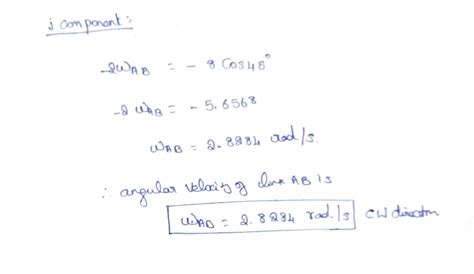 j component:
-2ωAB = - 8 Cos45°
-2 ωAB = - 5.6568
ωAB = 2.8284 rad/s.
∴ angular velocity of link AB is
ωAB = 2.8284 rad/s CW direction